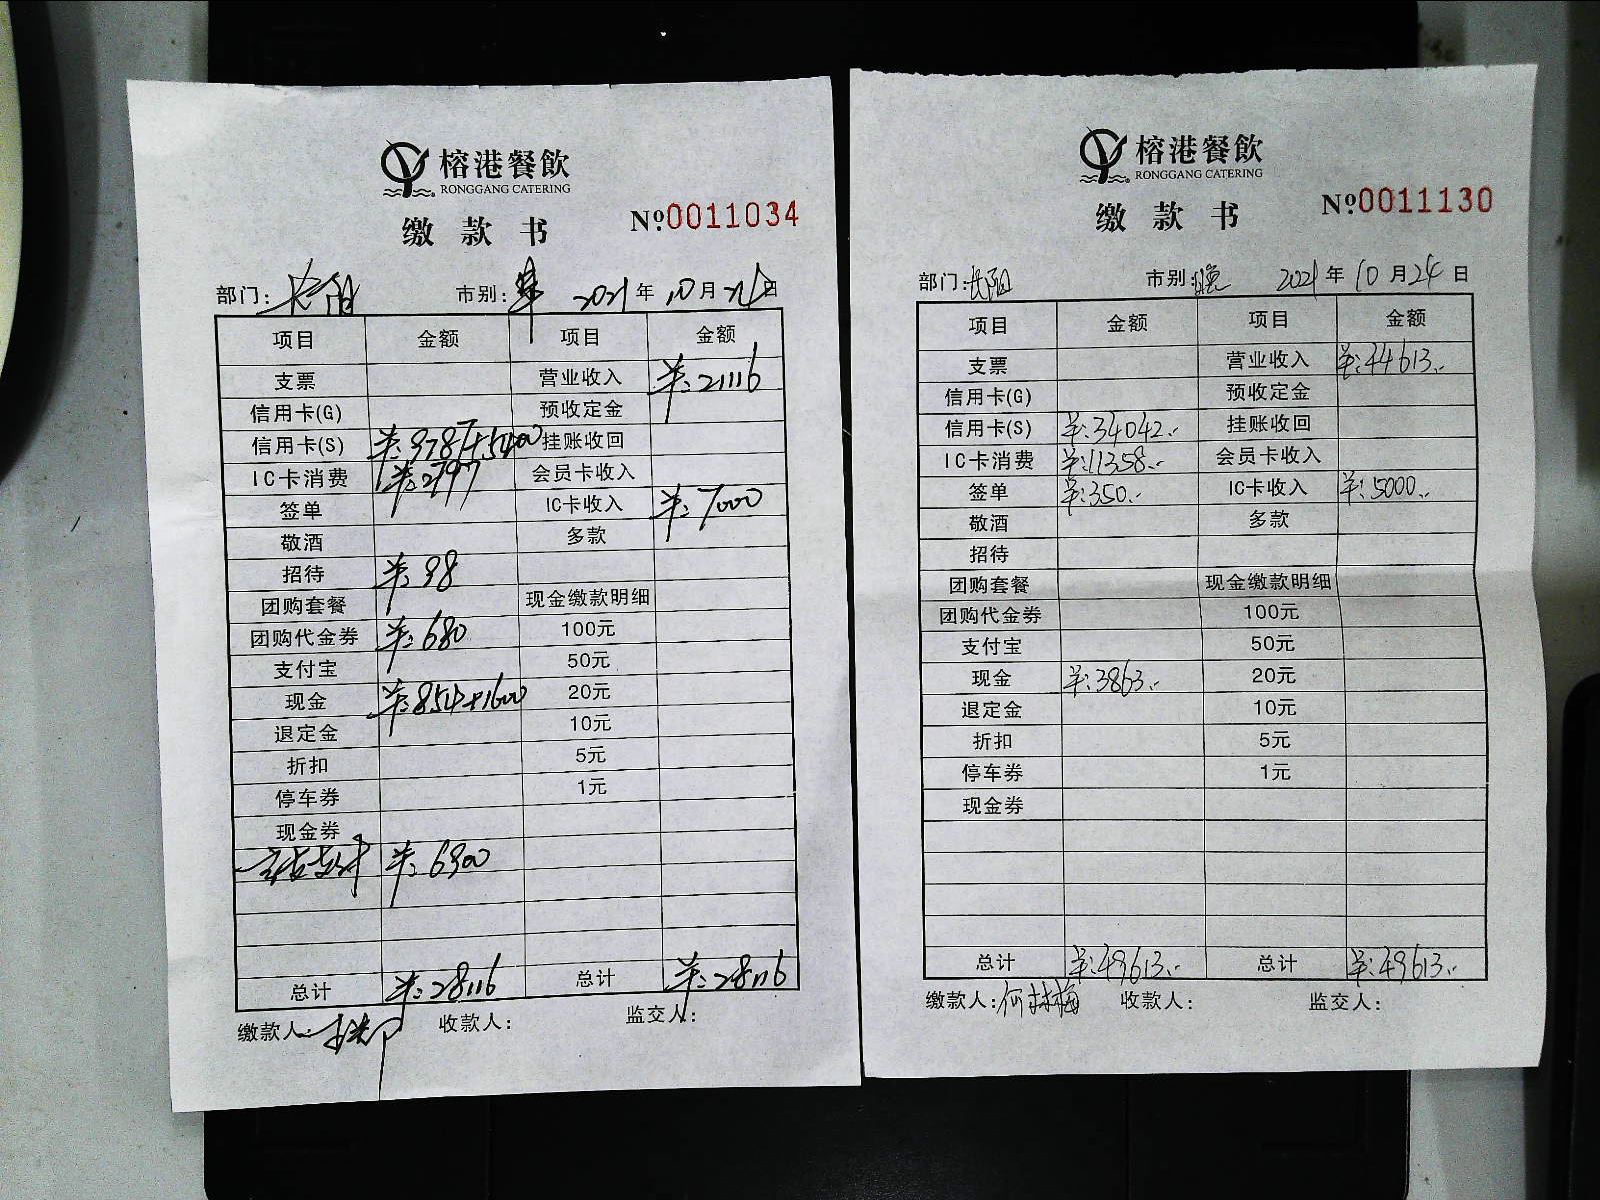 榕港餐飲
RONGGANG CATERING
缴款书
№0011034
部门: 长阳 市别: 2021年10月24日
项目 金额 项目 金额
支票 营业收入 ¥:21116
信用卡(G) 预收定金
信用卡(S) ¥:9787+5400 挂账收回
IC卡消费 ¥:2797 会员卡收入
签单 IC卡收入 ¥:7000
敬酒 多款
招待 ¥:98
团购套餐 现金缴款明细
团购代金券 ¥:680 100元
支付宝 50元
现金 ¥:854+1600 20元
退定金 10元
折扣 5元
停车券 1元
现金券
¥:6900
总计 ¥:28116 总计 ¥:28116
缴款人: 收款人: 监交人:
榕港餐飲
RONGGANG CATERING
缴款书
№0011130
部门: 长阳 市别: 晚 2021年10月24日
项目 金额 项目 金额
支票 营业收入 ¥:44613.-
信用卡(G) 预收定金
信用卡(S) ¥:34042.- 挂账收回
IC卡消费 ¥:11358.- 会员卡收入
签单 ¥:350.- IC卡收入 ¥:5000.-
敬酒 多款
招待
团购套餐 现金缴款明细
团购代金券 100元
支付宝 50元
现金 ¥:3863.- 20元
退定金 10元
折扣 5元
停车券 1元
现金券
总计 ¥:49613.- 总计 ¥:49613.-
缴款人: 何林梅 收款人: 监交人: